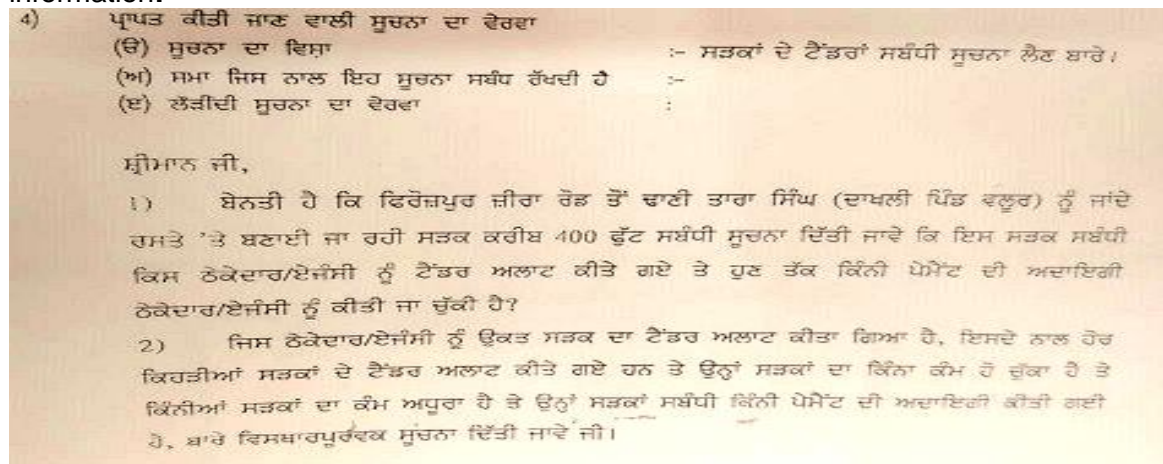 information.
4) ਪ੍ਰਾਪਤ ਕੀਤੀ ਜਾਣ ਵਾਲੀ ਸੂਚਨਾ ਦਾ ਵੇਰਵਾ
(ੳ) ਸੂਚਨਾ ਦਾ ਵਿਸ਼ਾ :- ਸੜਕਾਂ ਦੇ ਟੈਂਡਰਾਂ ਸਬੰਧੀ ਸੂਚਨਾ ਲੈਣ ਬਾਰੇ।
(ਅ) ਸਮਾ ਜਿਸ ਨਾਲ ਇਹ ਸੂਚਨਾ ਸਬੰਧ ਰੱਖਦੀ ਹੈ :-
(ੲ) ਲੋੜੀਂਦੀ ਸੂਚਨਾ ਦਾ ਵੇਰਵਾ :
ਸ਼੍ਰੀਮਾਨ ਜੀ,
1) ਬੇਨਤੀ ਹੈ ਕਿ ਫਿਰੋਜ਼ਪੁਰ ਜ਼ੀਰਾ ਰੋਡ ਤੋਂ ਢਾਣੀ ਤਾਰਾ ਸਿੰਘ (ਦਾਖਲੀ ਪਿੰਡ ਵਲੂਰ) ਨੂੰ ਜਾਂਦੇ
ਰਸਤੇ 'ਤੇ ਬਣਾਈ ਜਾ ਰਹੀ ਸੜਕ ਕਰੀਬ 400 ਫੁੱਟ ਸਬੰਧੀ ਸੂਚਨਾ ਦਿੱਤੀ ਜਾਵੇ ਕਿ ਇਸ ਸੜਕ ਸਬੰਧੀ
ਕਿਸ ਠੇਕੇਦਾਰ/ਏਜੰਸੀ ਨੂੰ ਟੈਂਡਰ ਅਲਾਟ ਕੀਤੇ ਗਏ ਤੇ ਹੁਣ ਤੱਕ ਕਿੰਨੀ ਪੇਮੈਂਟ ਦੀ ਅਦਾਇਗੀ
ਠੇਕੇਦਾਰ/ਏਜੰਸੀ ਨੂੰ ਕੀਤੀ ਜਾ ਚੁੱਕੀ ਹੈ?
2) ਜਿਸ ਠੇਕੇਦਾਰ/ਏਜੰਸੀ ਨੂੰ ਉਕਤ ਸੜਕ ਦਾ ਟੈਂਡਰ ਅਲਾਟ ਕੀਤਾ ਗਿਆ ਹੈ, ਇਸਦੇ ਨਾਲ ਹੋਰ
ਕਿਹੜੀਆਂ ਸੜਕਾਂ ਦੇ ਟੈਂਡਰ ਅਲਾਟ ਕੀਤੇ ਗਏ ਹਨ ਤੇ ਉਨ੍ਹਾਂ ਸੜਕਾਂ ਦਾ ਕਿੰਨਾ ਕੰਮ ਹੋ ਚੁੱਕਾ ਹੈ ਤੇ
ਕਿੰਨੀਆਂ ਸੜਕਾਂ ਦਾ ਕੰਮ ਅਧੂਰਾ ਹੈ ਤੇ ਉਨ੍ਹਾਂ ਸੜਕਾਂ ਸਬੰਧੀ ਕਿੰਨੀ ਪੇਮੈਂਟ ਦੀ ਅਦਾਇਗੀ ਕੀਤੀ ਗਈ
ਹੈ, ਬਾਰੇ ਵਿਸਥਾਰਪੂਰਵਕ ਸੂਚਨਾ ਦਿੱਤੀ ਜਾਵੇ ਜੀ।